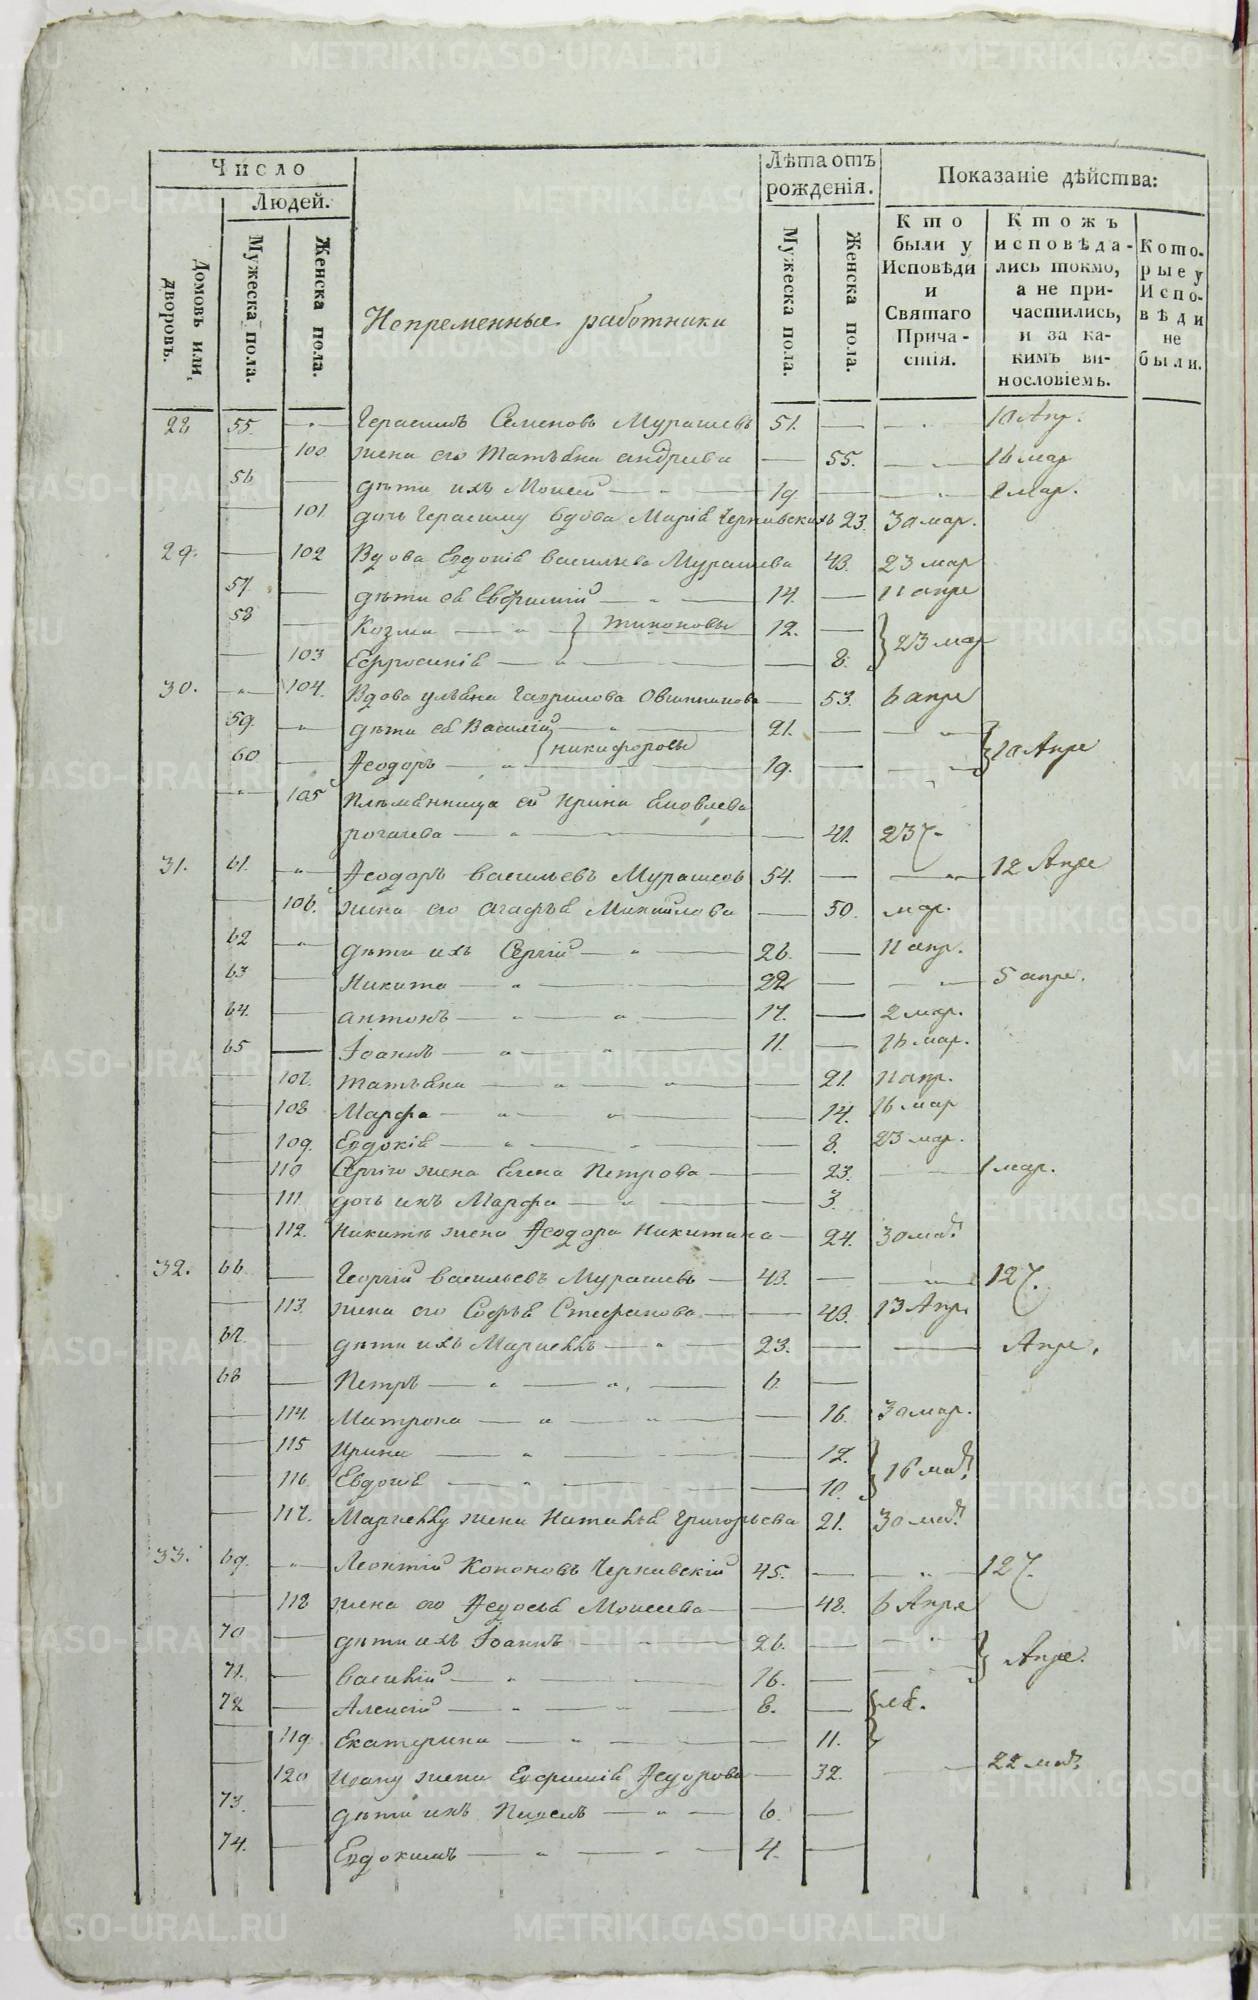 Число
Людей.
Домовъ или дворовъ.
Мужеска пола.
Женска пола.
Непременные работники
Лѣта отъ рожденія.
Мужеска пола.
Женска пола.
Показаніе дѣйства:
Кто были у Исповѣди и Святаго Причастія.
Ктожъ исповѣдались токмо, а не причастились, и за какимъ винословіемъ.
Которые у Исповѣди не были.
28 55 Герасимъ Семеновъ Мурашевъ 51. 10 Апр.
100 жена его Татьяна андреева 55. 16 мар
56 дѣти ихъ Моисей 19 2 мар.
101. дочь Герасиму вдова Марія Чернявскихъ 23. 30 мар.
29. 102 Вдова Евдокія васильева Мурашева 43. 23 мар
57. дѣти ея Евфимій 14. 11 апре
58 Козма Тихоновы 12. 23 мар
103 Ефросинія 8.
30. 104. Вдова ульяна Гаврилова Овчинникова 53. 6 апре
59. дѣти ея Василій 21. 10 Апре
60 никифоровы Ѳеодоръ 19.
105 Племянница ей Ирина Яковлева
рогачева 41. 23
31. 61. Ѳеодоръ васильевъ Мурашевъ 54. 12 Апре
106. жена его агафья Михайлова 50. мар.
62 дѣти ихъ Сергій 26. 11 апр.
63 Никита 22 5 апре.
64. антонъ 17. 2 мар.
65 Іоаннъ 11. 16 мар.
107. татьяна 21. 11 апр.
108 Марфа 14. 16 мар
109. Евдокія 8. 23 мар.
110 Сергію жена Елена Петрова 23. 1 мар.
111 дочь ихъ Марфа 3.
112. Никитѣ жена Ѳеодора Никитина 24. 30 мар
32. 66. Георгій васильевъ Мурашевъ 43. 12
113. жена его Софья Стефанова 43. 13 Апр.
67. дѣти ихъ 23. Апре.
68 Петръ 6.
114. Матрона 16. 30 мар.
115 Ирина 12. 16 мар
116 Евдокія 10.
117. жена Наталья Григорьева 21. 30 мар
33. 69. Леонтій Кононовъ Чернявскій 45. 12
118 жена его Ѳедосья Моисеева 48. 6 Апре
70 дѣти ихъ Іоаннъ 26. Апре.
71. василій 16.
72 Алексій 8.
119. Екатерина 11.
120 Ивану жена Евфимія Ѳедорова 32. 22 мар
73. дѣти ихъ 6.
74. Евдокимъ 4.